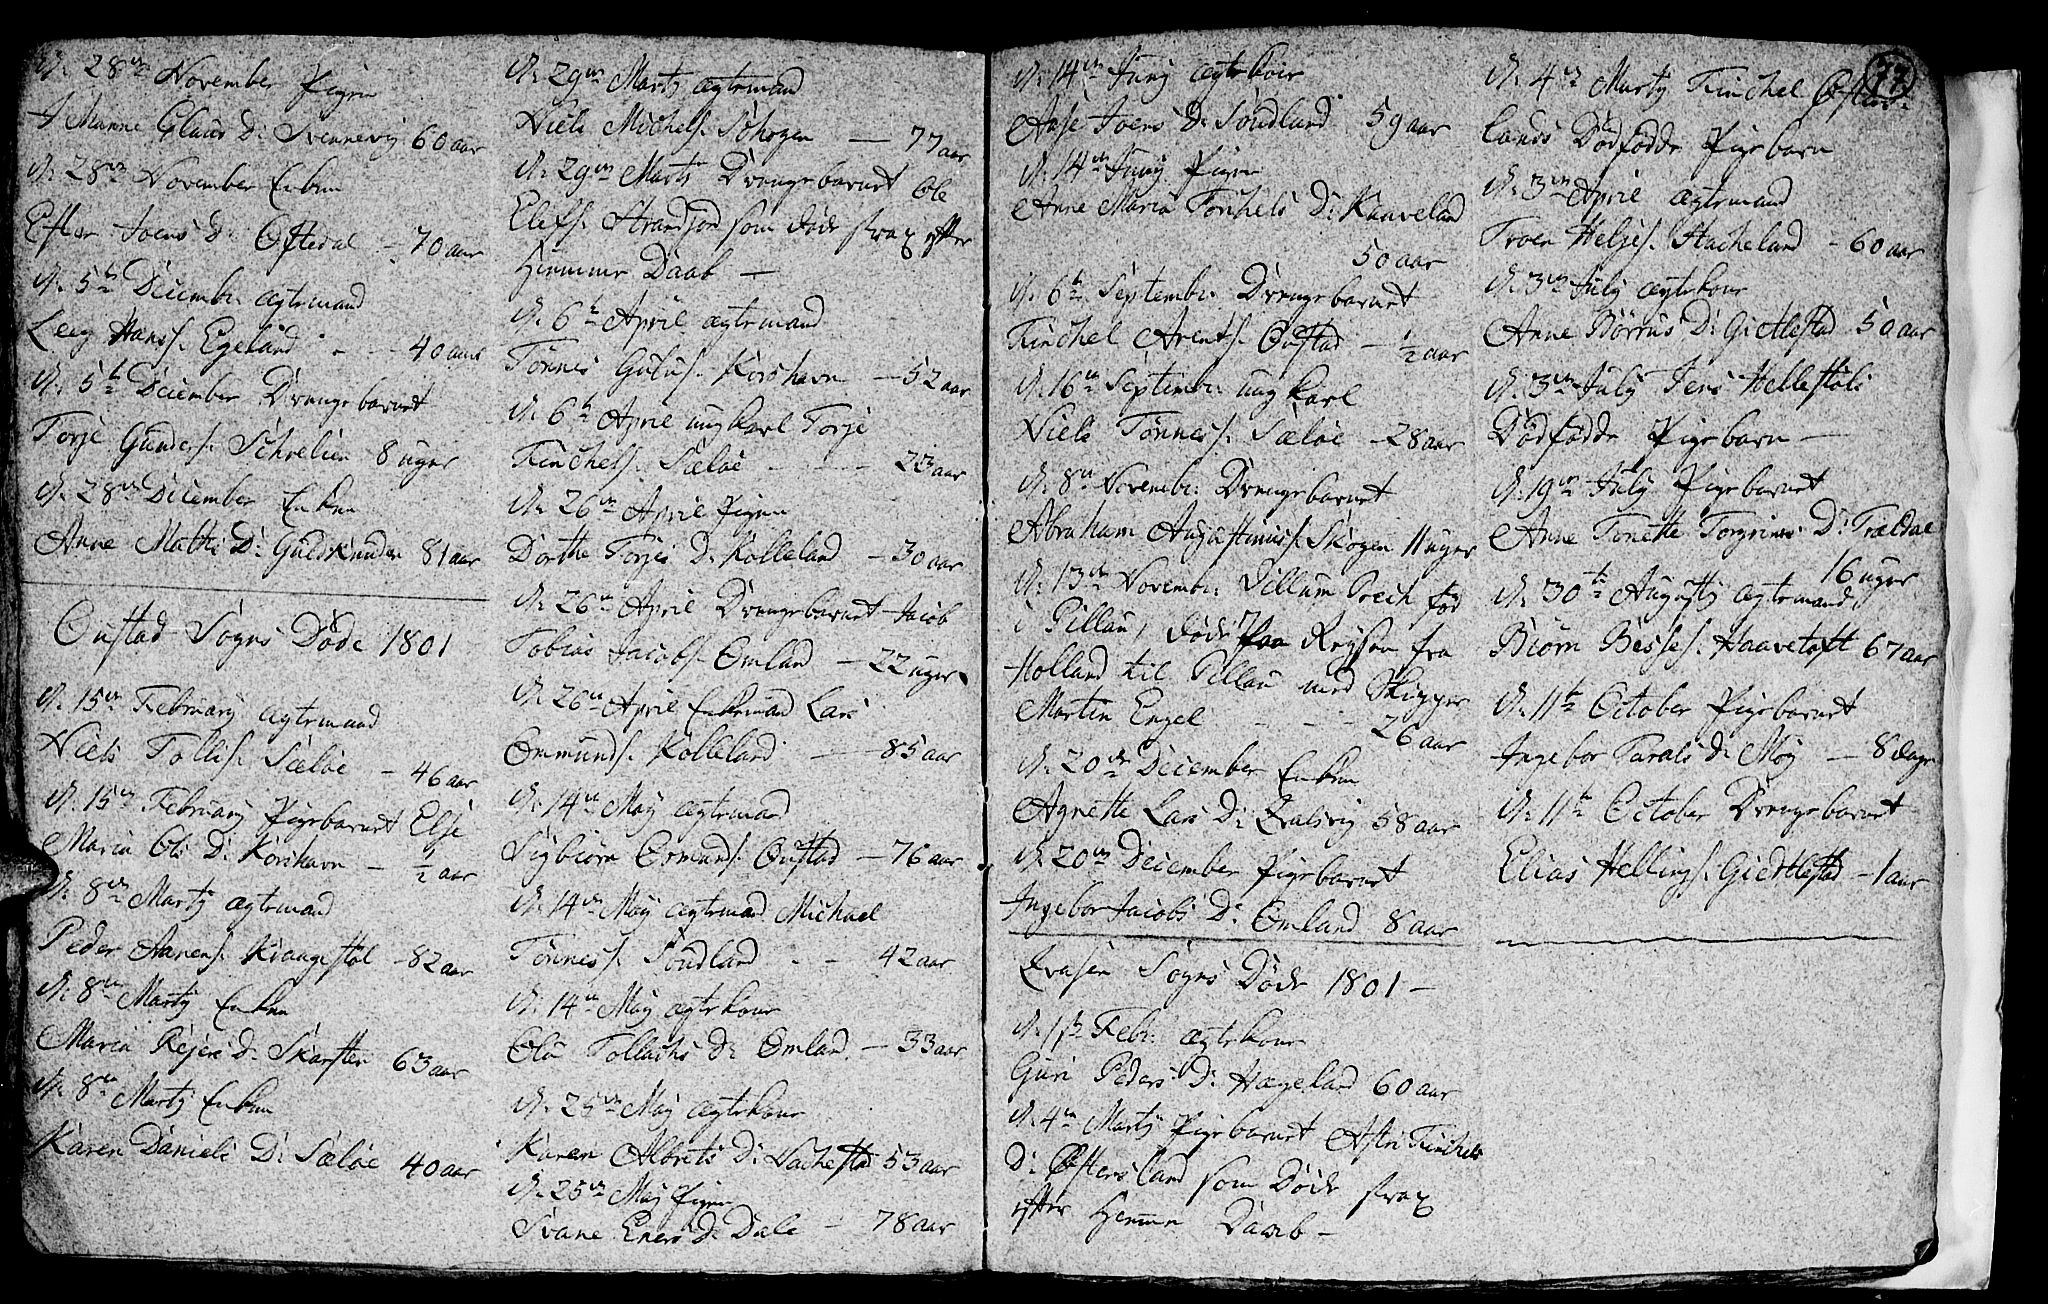 D: 28de November Pigen
Manne Claus D: Svennevig 60 aar
D: 28de November Enken
Ester Joens D: Oftedal - 70 aar
D: 5te Decembr: ægtemand
Leeg Hanss: Egeland - - 40 aar
D: 5te December Drengebarnet
Torje Gunders: Schrelien 8 uger
D: 28de December Enken
Anne Mathi D: Guldknuden 81 aar
Oustad Sogns Døde 1801
D: 15de February ægtemand
Niels Tollis: Sæløe - 46 aar
D: 15de February Pigebarnet Else
Maria Ols D: Korshavn - 1/2 aar
D: 8de Marty ægtemand
Peder Aanens: Kvangestøl - 82 aar
D: 8de Marty Enken
Maria Rejers D: Skarsten 63 aar
D: 8de Marty Enken
Karen Daniels D: Sæløe 40 aar
D: 29de Marty ægtemand
Niels Michels: Schogen — 77 aar
D: 29de Marts Drengebarnet Ole
Elefs: Strandford som døde strax efter
Hiemme Daab —
D: 6te April ægtemand
Tønnes Gulus: Korshavn — 52 aar
D: 6te April ungkarl Torje
Tinchels: Sæløe - - - 23 aar
D: 26de April Pigen
Dorthe Torjes D: Kolleland — 30 aar
D: 26de April Drengebarnet Jacob
Tobias Jacobs: Omland — 22 uger
D: 26de April Enkemand Lars
Ommunds: Kolleland — 85 aar
D: 14de May ægtemand
Sigbiørn Ormunds: Oustad — 76 aar
D: 14de May ægtemand Michael
Tønness: Sundland - - 42 aar
D: 14de May ægtekone
Olu Tollachs D: Omland — 33 aar
D: 25de May ægtekone
Karen Albrets D: Vachestad 53 aar
D: 25de May Pigen
Svane Eners D: Dale — 78 aar
D: 14de Juny ægtekone
Aase Joens D: Sundland 59 aar
D: 14de Juny Pigen
Anne Maria Tønchels D: Kaaveland
50 aar
D: 6te Septembr: Drengebarnet
Tinchel Arents: Oustad — 1/2 aar
D: 16de Septembr: ungkarl
Niels Tønnes: Sæløe - 28 aar
D: 8de Novembr: Drengebarnet
Abraham Augustinus: Skogen 11 uger
D: 13de Novembr: Villum Prech fød
i Pillau, døde Paa Reysen fra
Holland til Pillau med Skipper
Martin Engel - - - 26 aar
D: 20de December Enken
Agnette Lars D: Qvalsvig 58 aar
D: 20de December Pigebarnet
Ingebor Jacobs D: Omland 8 aar
Qvaasen Sogns Døde 1801 —
D: 1te Febr: ægtekone
Guri Peders D: Hægeland 60 aar
D: 4de Marty Pigebarnet Astri Tinchels
D: Østersland som døde strax
efter Hiemme Daab —
77
D: 4de Marty Tinchel Østers-
lands Dødfødde Pigebarn
D: 3de April ægtemand
Troen Heljes: Stacheland - 60 aar
D: 3de July ægtekone
Anne Børrus D: Giettlestad 50 aar
D: 3de July Jens Hellestøls
Dødfødde Pigebarn —
D: 19de July Pigebarnet
Anne Tonette Torgrims D: Trældal
16 uger
D: 30te Augusty ægtemand
Biørn Besses: Haavetoft 67 aar
D: 11te October Pigebarnet
Ingebor Taralds D: Moy — 8 dage
D: 11te October Drengebarnet
Elias Hellings: Giettlestad - 1 aar